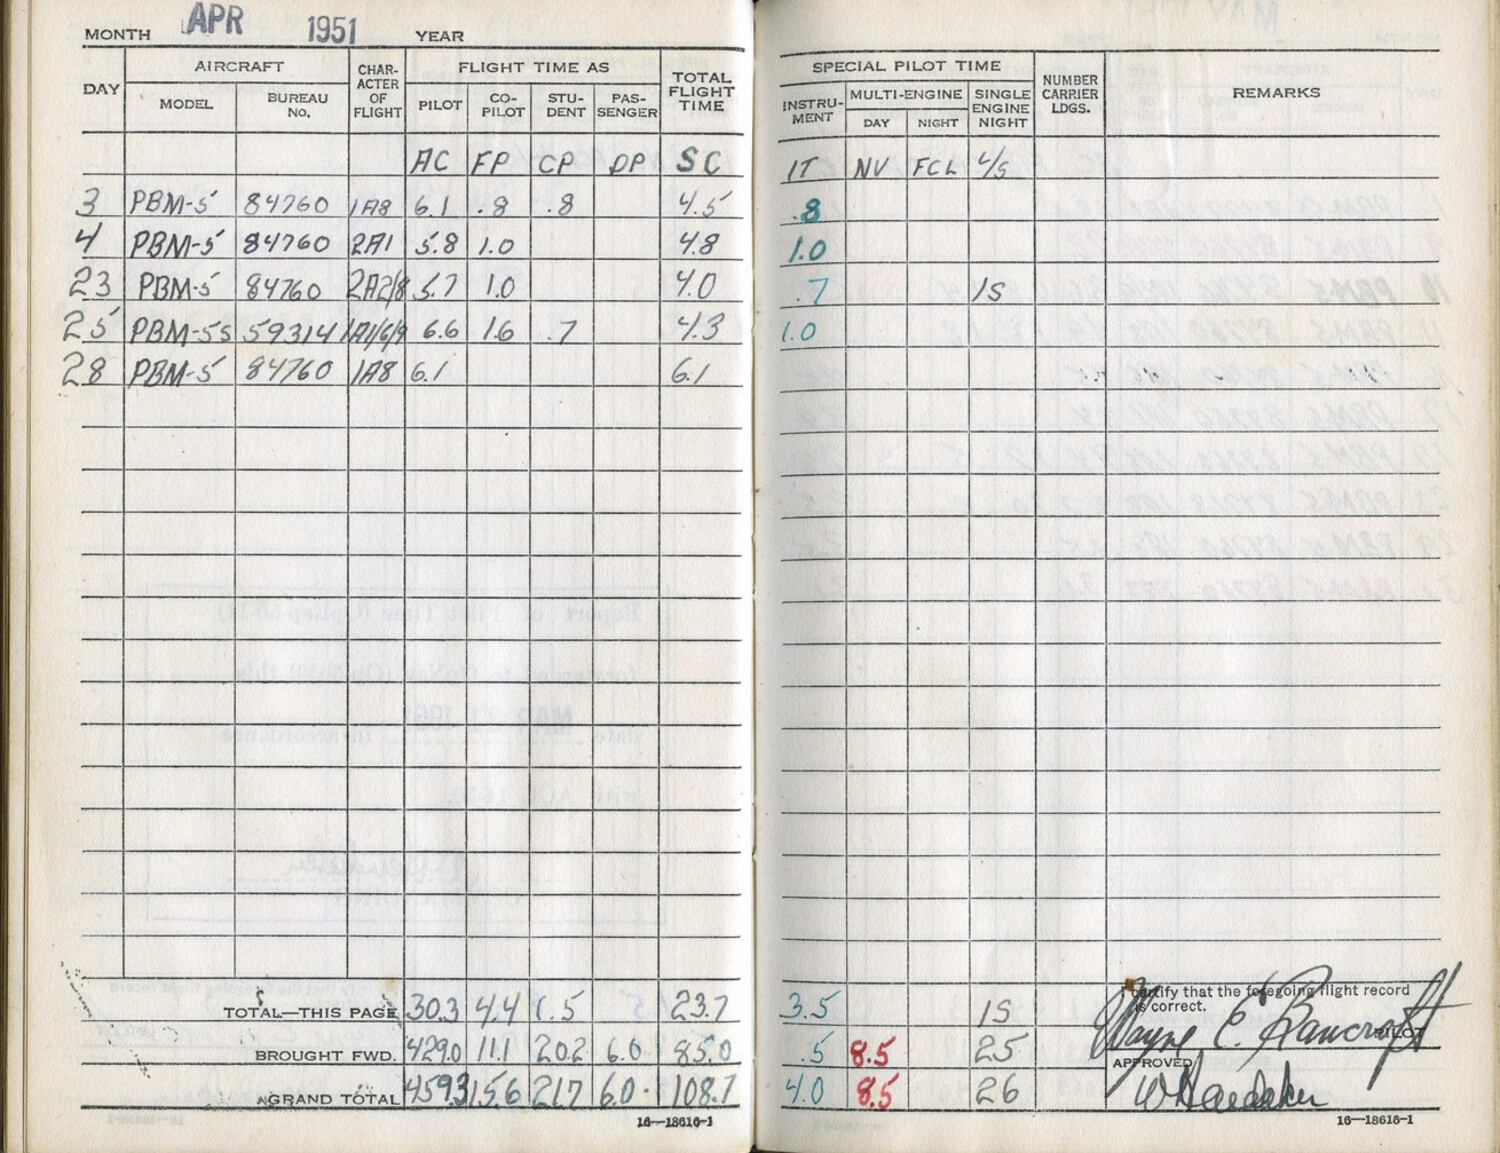 MONTH APR 1951 YEAR
DAY AIRCRAFT CHARACTER OF FLIGHT FLIGHT TIME AS TOTAL FLIGHT TIME
MODEL BUREAU No. PILOT CO-PILOT STU-DENT PAS-SENGER
AC FP CP DP SC
3 PBM-5 84760 1A8 6.1 .8 .8 4.5
4 PBM-5 84760 2A1 5.8 1.0 4.8
23 PBM-5 84760 2A2/8 5.7 1.0 4.0
25 PBM-5S 59314 1A1/6/9 6.6 1.6 .7 4.3
28 PBM-5 84760 1A8 6.1 6.1
TOTAL—THIS PAGE 30.3 4.4 1.5 23.7
BROUGHT FWD. 429.0 11.1 20.2 6.0 85.0
GRAND TOTAL 459.3 15.6 21.7 6.0 108.7
16—18616-1
SPECIAL PILOT TIME NUMBER CARRIER LDGS. REMARKS
INSTRU-MENT MULTI-ENGINE SINGLE ENGINE NIGHT
DAY NIGHT
IT NV FCL L/S
.8
1.0
.7 1S
1.0
3.5 1S
.5 8.5 25
4.0 8.5 26
I certify that the foregoing flight record
is correct.
Wayne E. Bancroft
PILOT
APPROVED
16—18616-1